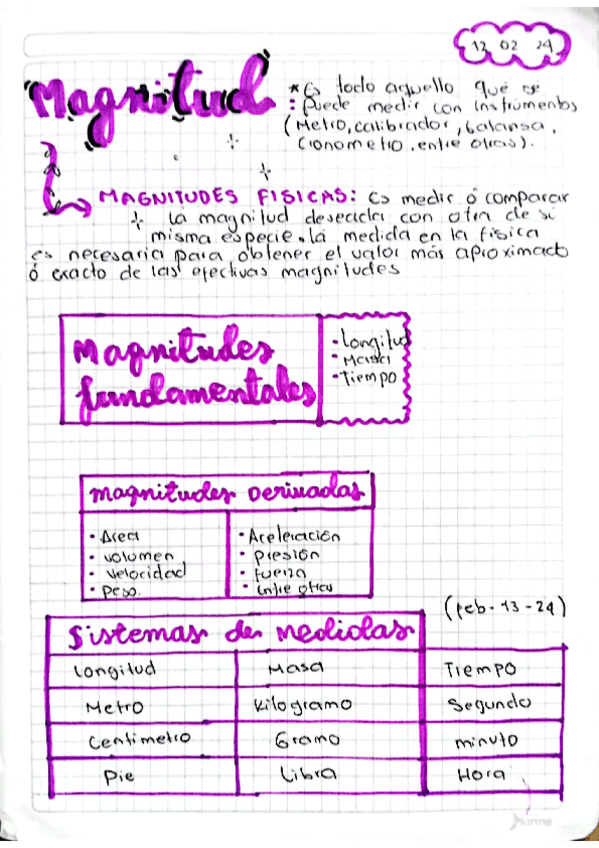 12 02 24
Magnitud
* Es todo aquello que se
: puede medir con instrumentos
(Metro, calibrador, balansa,
Cronometro, entre otras).
MAGNITUDES FISICAS: Es medir ó comparar
la magnitud deseada con otra de si
misma especie. la medida en la física
es necesaria para obtener el valor más aproximado
ó exacto de las efectivas magnitudes
Magnitudes
fundamentales
- Longitud
- Masa
- Tiempo
magnitudes Derivadas
• Area
• volumen
• velocidad
• peso.
• Aceleración
• presión
• fuerza
• Entre otras
(feb - 13 - 24)
Sistemas de medidas
Longitud Masa Tiempo
Metro Kilogramo Segundo
Centimetro Gramo minuto
Pie Libra Hora
Norma